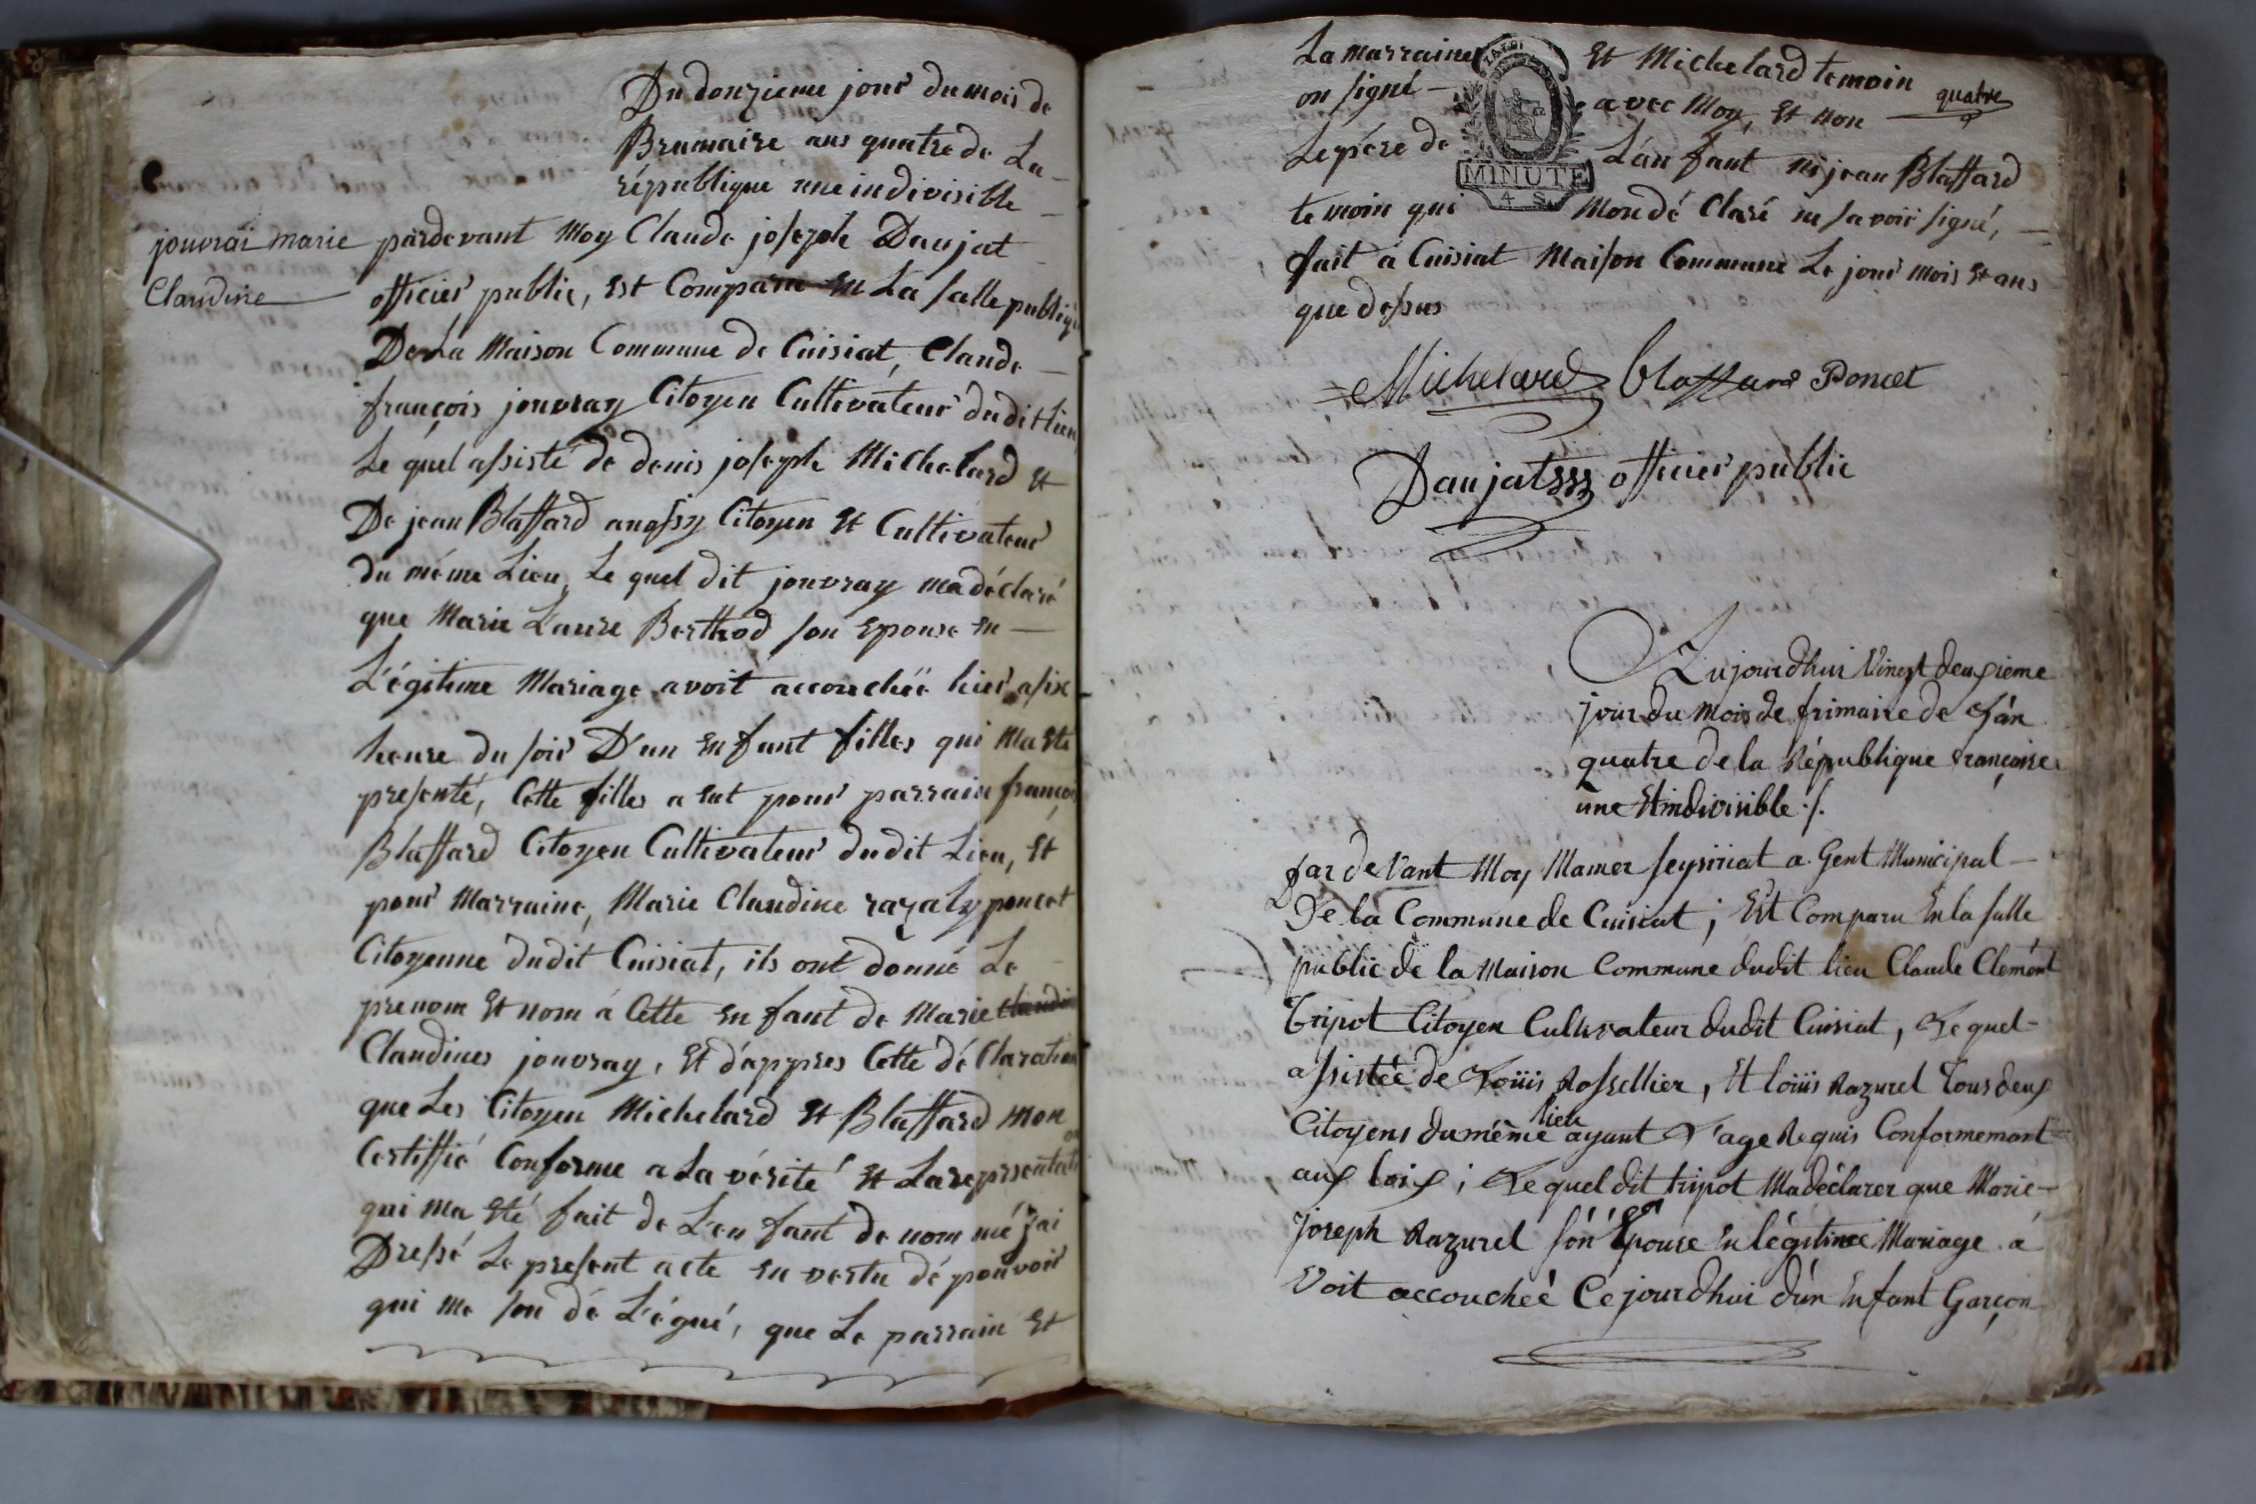 Du douzieme jour du mois de
Brumaire ans quatre de La
république une indivisible
jouvrai marie
Claudine
pardevant Moy Claude joseph Daujat
officier public, Est Comparu En La salle publiqu
De La Maison Commune de Cuisiat, Claude
françois jouvray Citoyen Cultivateur dudit lieu
Le quel assisté de denis joseph Michelard Et
De jean Blaffard aussy Citoyen Et Cultivateur
du même Lieu, Le quel dit jouvray ma déclaré
que Marie Laure Berthod son Epouse En
L'égitime Mariage avoit accouchéé hier a six
heure du soir D'un Enfant filles qui Ma Eté
presenté, Cette filles a Eut pour parrain françois
Blaffard Citoyen Cultivateur dudit Lieu, Et
pour Marraine, Marie Claudine poncet
Citoyenne dudit Cuisiat, ils ont donné Le
prenom Et nom á Cette Enfant de Marie Claudi
Claudines jouvray, Et d'appres Cette dé Claration
que Les Citoyen Michelard Et Blaffard mon
Certiffié Conforme a La vérité Et La representati
qui ma Eté fait de L'en fant de nom mé j'ai
Dressé Le present acte En vertu dé pouvoir
qui me son dé L'égué, que Le parrain Et
La marraine Et Michelard temoin
on signé avec Moy, Et non
quatre
Le pére de L'an fant ni jean Blaffard
MINUTE
4 S.
te moin qui Mon dé Claré ne savoir signé,
fait a Cuisiat Maison Commune Le jour mois Et ans
que dessus
Michelard blaffard Poncet
Daujat officier public
Aujourdhui Vingt deuxieme
jour du Mois de frimaire de L'án
quatre de la République françoise
une Et indivisible ./.
par de Vant Moy Mamer seyssiriat a Gent Municipal
De la Commune de Cuisiat; Est Comparu En la salle
public de la Maison Commune dudit lieu Claude Clemént
tripot Citoyen Cultivateur dudit Cuisiat, Le quel
assistéé de Loüis Rossellier, Et loüis Razurel Tous deux
Citoyens du même lieu ayant L'age Requis Conformemant
aux loix; Le quel dit tripot Ma déclarer que Marie
Joseph Razurel són Epouse En légitimée Mariage a
Voit accouchéé Ce jourdhui d'ún Enfant Garçon